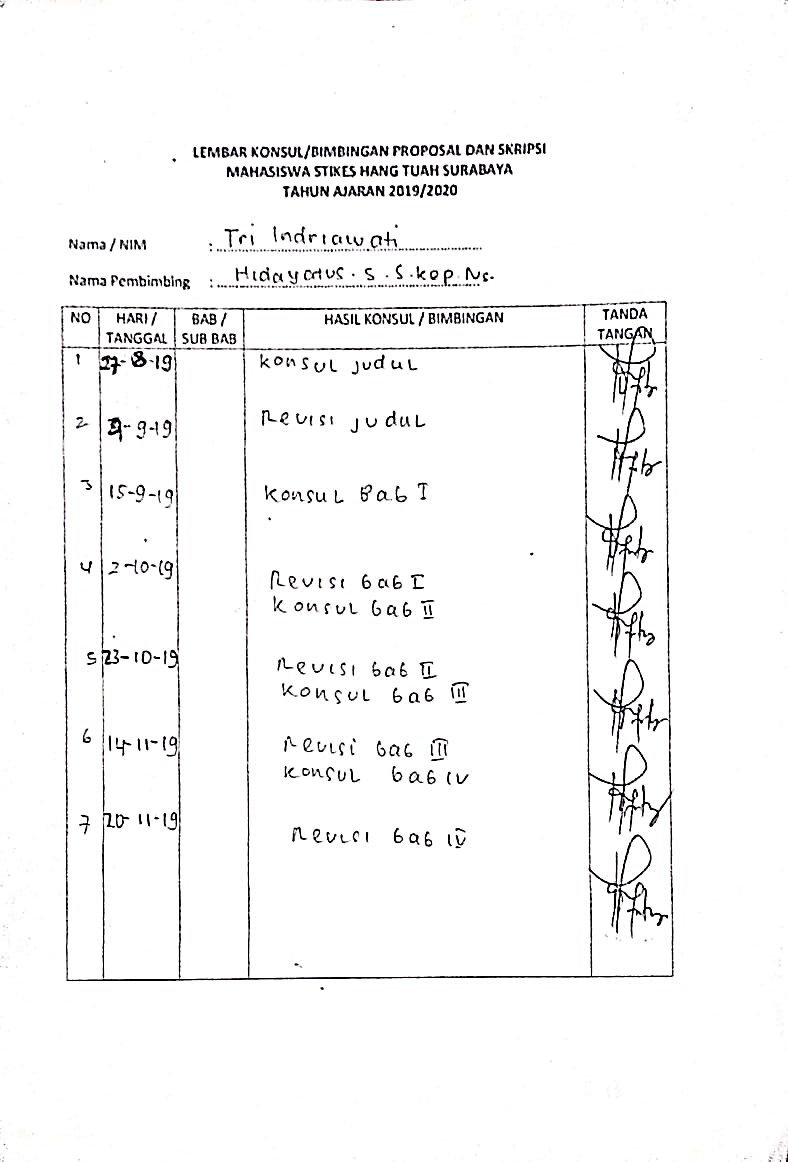 LEMBAR KONSUL/BIMBINGAN PROPOSAL DAN SKRIPSI
MAHASISWA STIKES HANG TUAH SURABAYA
TAHUN AJARAN 2019/2020
Nama / NIM : Tri Indriawati
Nama Pembimbing : Hidayatus . S . S.kep.Ns.
NO HARI / TANGGAL BAB / SUB BAB HASIL KONSUL / BIMBINGAN TANDA TANGAN
1 27-8-19 Konsul Judul
2 9-19 Revisi Judul
3 15-9-19 Konsul Bab I
4 2-10-19 Revisi bab I
Konsul bab II
5 23-10-19 Revisi bab II
Konsul bab III
6 14-11-19 Revisi bab III
Konsul bab IV
7 20-11-19 Revisi bab IV